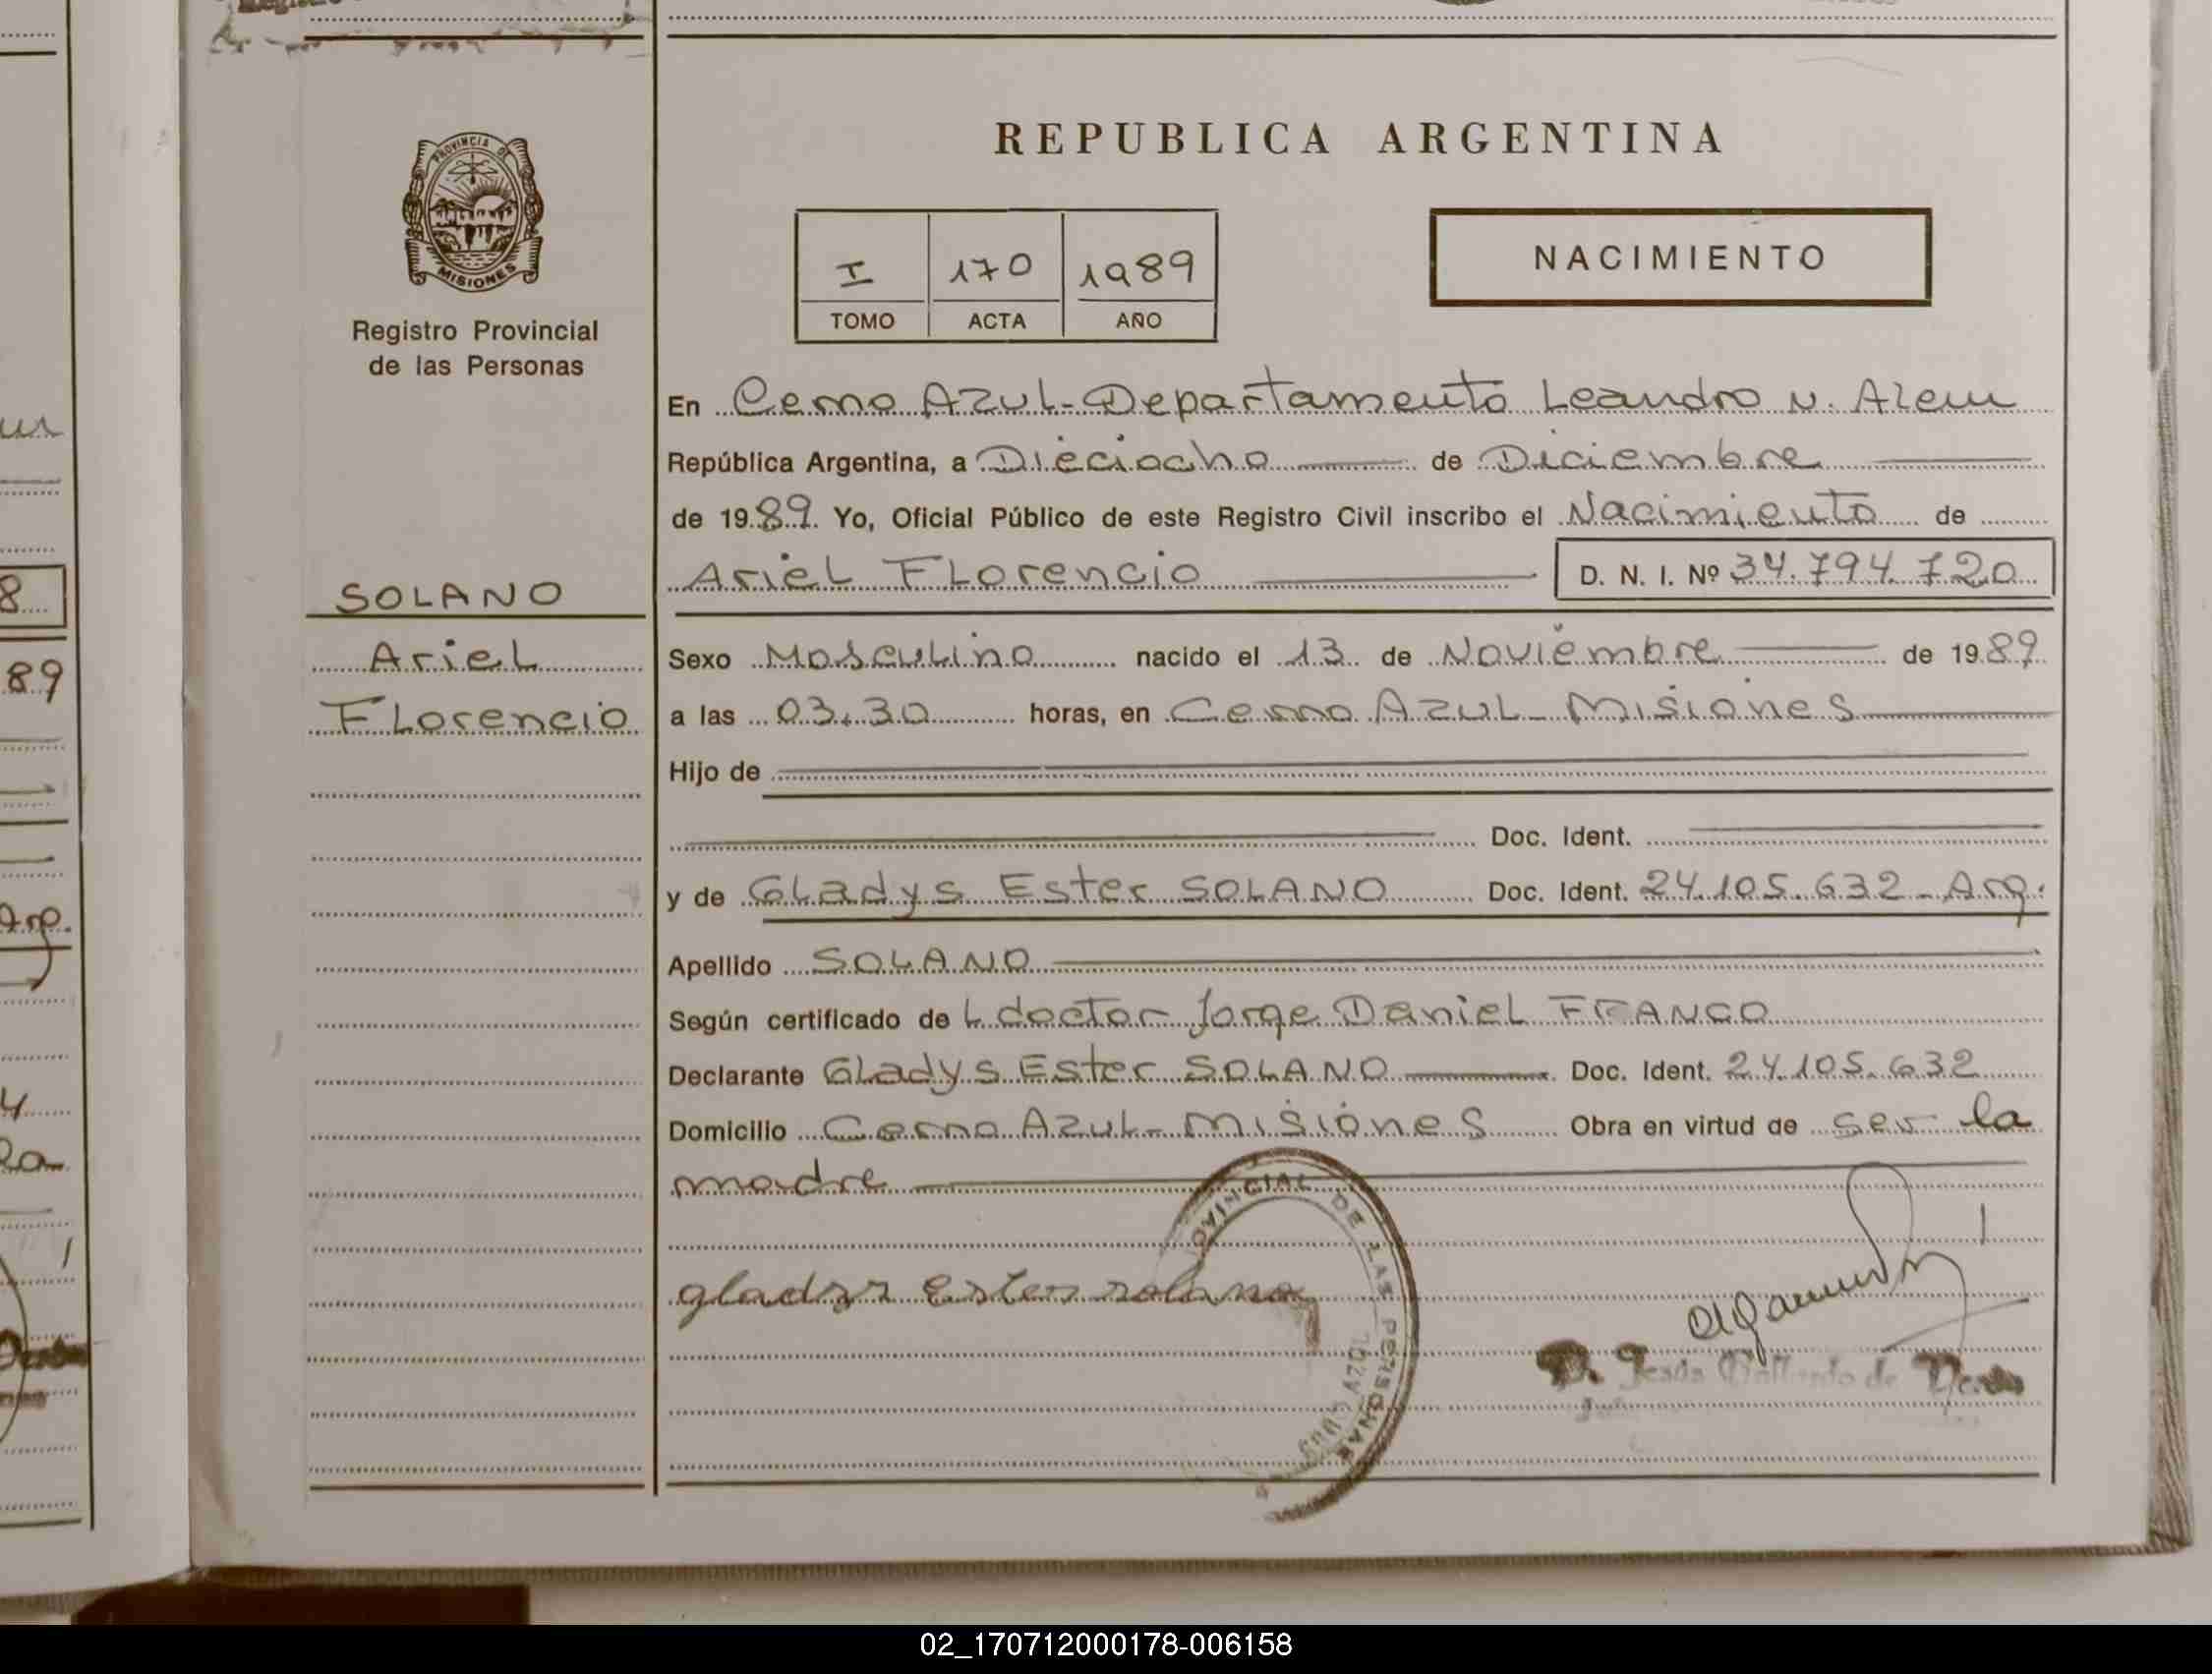 PROVINCIA DE
MISIONES
Registro Provincial
de las Personas
SOLANO
Ariel
Florencio
REPUBLICA ARGENTINA
I 170 1989
TOMO ACTA AÑO
NACIMIENTO
En Cerro Azul-Departamento Leandro N. Alem
República Argentina, a Dieciocho de Diciembre
de 1989. Yo, Oficial Público de este Registro Civil inscribo el Nacimiento de
Ariel Florencio D. N. I. Nº 34.794.720
Sexo Masculino nacido el 13 de Noviembre de 1989
a las 03.30 horas, en Cerro Azul-Misiones
Hijo de
Doc. Ident.
y de Gladys Ester SOLANO Doc. Ident. 24.105.632-Arg.
Apellido SOLANO
Según certificado del doctor Jorge Daniel FRANCO
Declarante Gladys Ester SOLANO Doc. Ident. 24.105.632
Domicilio Cerro Azul-Misiones Obra en virtud de ser la
madre
OVINCIAL DE LAS PERSONAS
AZUL
gladys Ester solano
Jesús Gallardo de
8
89
Arg.
4
la
02_170712000178-006158